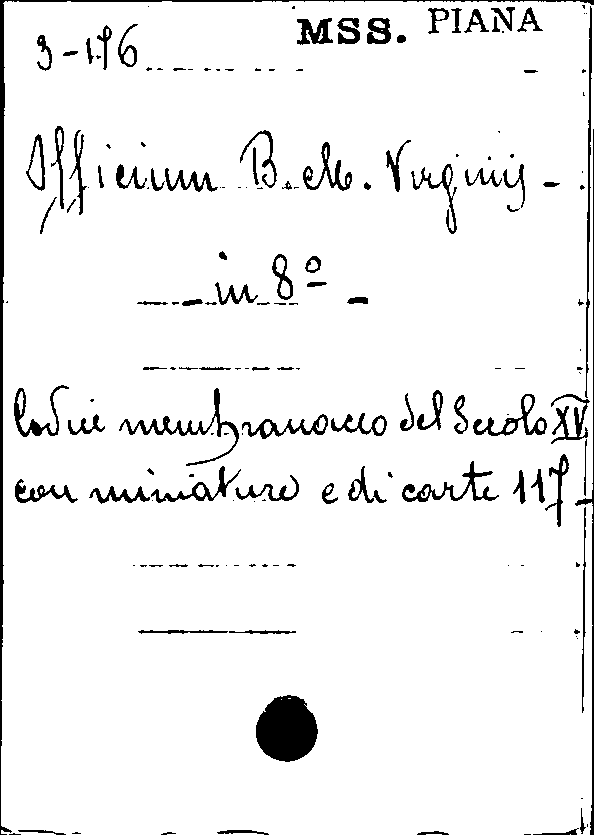 MSS. PIANA
3-176
Officium B. M. Virginis -
- in 8º -
Codice membranaceo del Secolo XV
con miniature e di carte 117 -